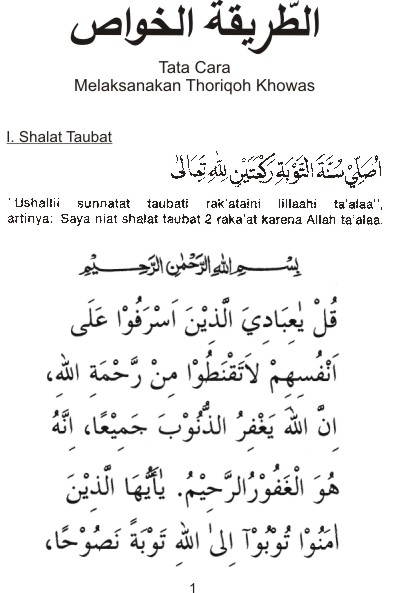 الطّريقة الخواص
Tata Cara
Melaksanakan Thoriqoh Khowas
I. Shalat Taubat
اُصَلِّيْ سُنَّةَ التَّوْبَةِ رَكْعَتَيْنِ لِلّٰهِ تَعَالٰى
"Ushallii sunnatat taubati rak'ataini lillaahi ta'alaa",
artinya: Saya niat shalat taubat 2 raka'at karena Allah ta'alaa.
بِسْمِ اللهِ الرَّحْمٰنِ الرَّحِيْمِ
قُلْ يٰعِبَادِيَ الَّذِيْنَ اَسْرَفُوْا عَلٰى
اَنْفُسِهِمْ لاَتَقْنَطُوْا مِنْ رَّحْمَةِ اللهِ،
اِنَّ اللهَ يَغْفِرُ الذُّنُوْبَ جَمِيْعًا، اِنَّهُ
هُوَ الْغَفُوْرُ الرَّحِيْمُ. يٰأَيُّهَا الَّذِيْنَ
اٰمَنُوْا تُوْبُوْآ اِلىٰ اللهِ تَوْبَةً نَصُوْحًا،
1